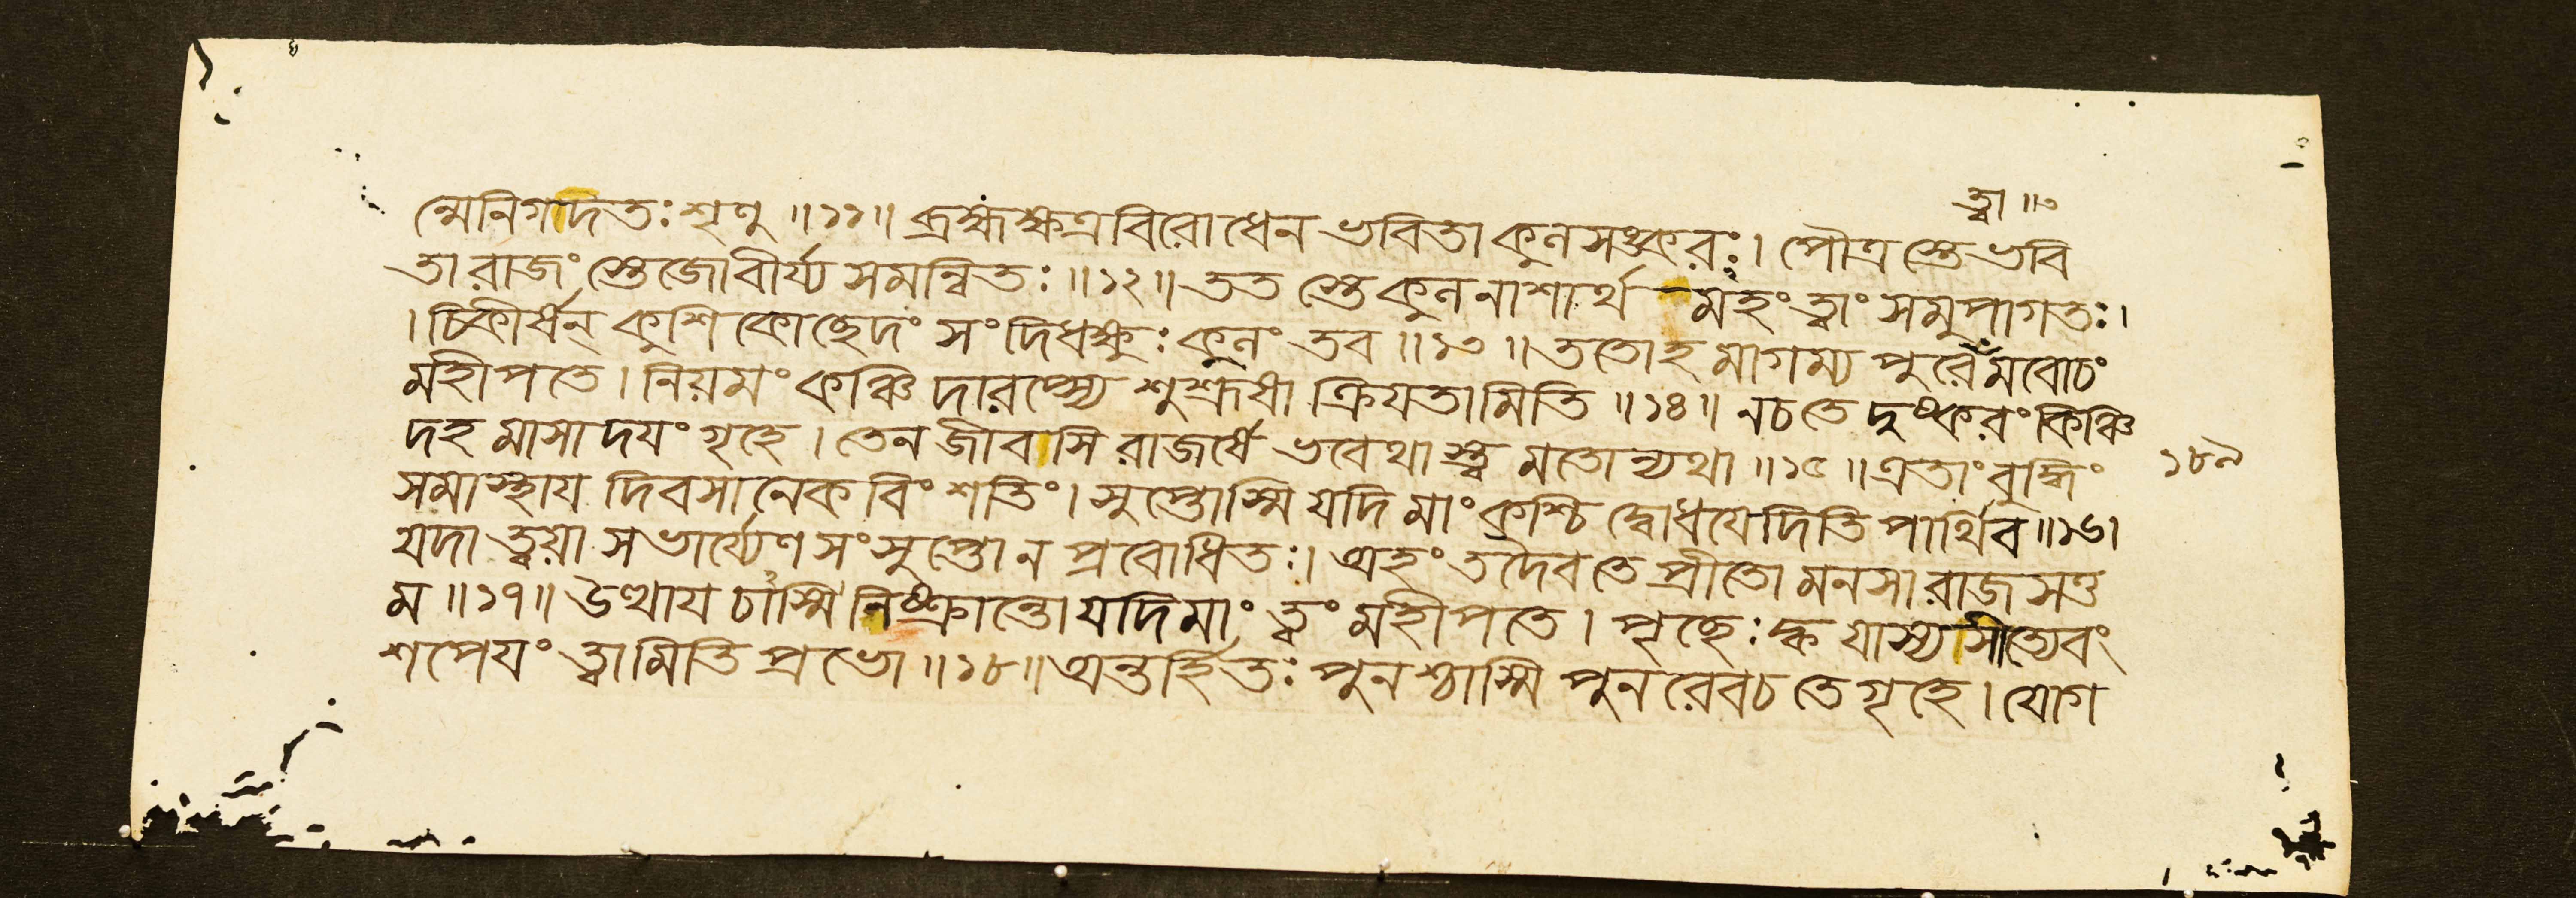 ত্বা ॥০
ন্মেনিগদিতঃ শৃণু ॥১১॥ ব্রহ্মক্ষত্রবিরোধেন ভবিতা কুলসঙ্করঃ। পৌত্রস্তে ভবি
তা রাজংস্তেজোবীর্য্যসমন্বিতঃ ॥১২॥ ততস্তে কুলনাশার্থ মহং ত্বাং সমুপাগতঃ।
। চিকীর্ষন্ কুশিকোচ্ছেদং সংদিধক্ষুঃ কুলং তব ॥১৩॥ ততোহমাগম্য পুরে মবোচং
মহীপতে। নিয়মং কঞ্চিদারপ্স্যে শুশ্রূষা ক্রিয়তামিতি ॥১৪॥ নচতে দুষ্করং কিঞ্চি
দহমাসাদয়ং গৃহে। তেন জীবসি রাজর্ষে ভবেথাস্ত্বমতোন্যথা ॥১৫॥ এতাং বুদ্ধিং
১৮৯
সমাস্থায় দিবসানেকবিংশতিং। সুপ্তোস্মি যদি মাং কশ্চিদ্বোধয়েদিতি পার্থিব ॥১৬।
যদা ত্বয়া সভার্য্যেণ সংসুপ্তো ন প্রবোধিতঃ। অহং তদৈবতে প্রীতো মনসা রাজসত্ত
ম ॥১৭॥ উত্থায় চাস্মি নিষ্ক্রান্তো যদি মাং ত্বং মহীপতে। পৃচ্ছেঃ ক্ক যাস্যসীত্যেবং
শপেয়ং ত্বামিতি প্রভো ॥১৮॥ অন্তর্হিতঃ পুনশ্চাস্মি পুনরেবচ তে গৃহে। যোগ